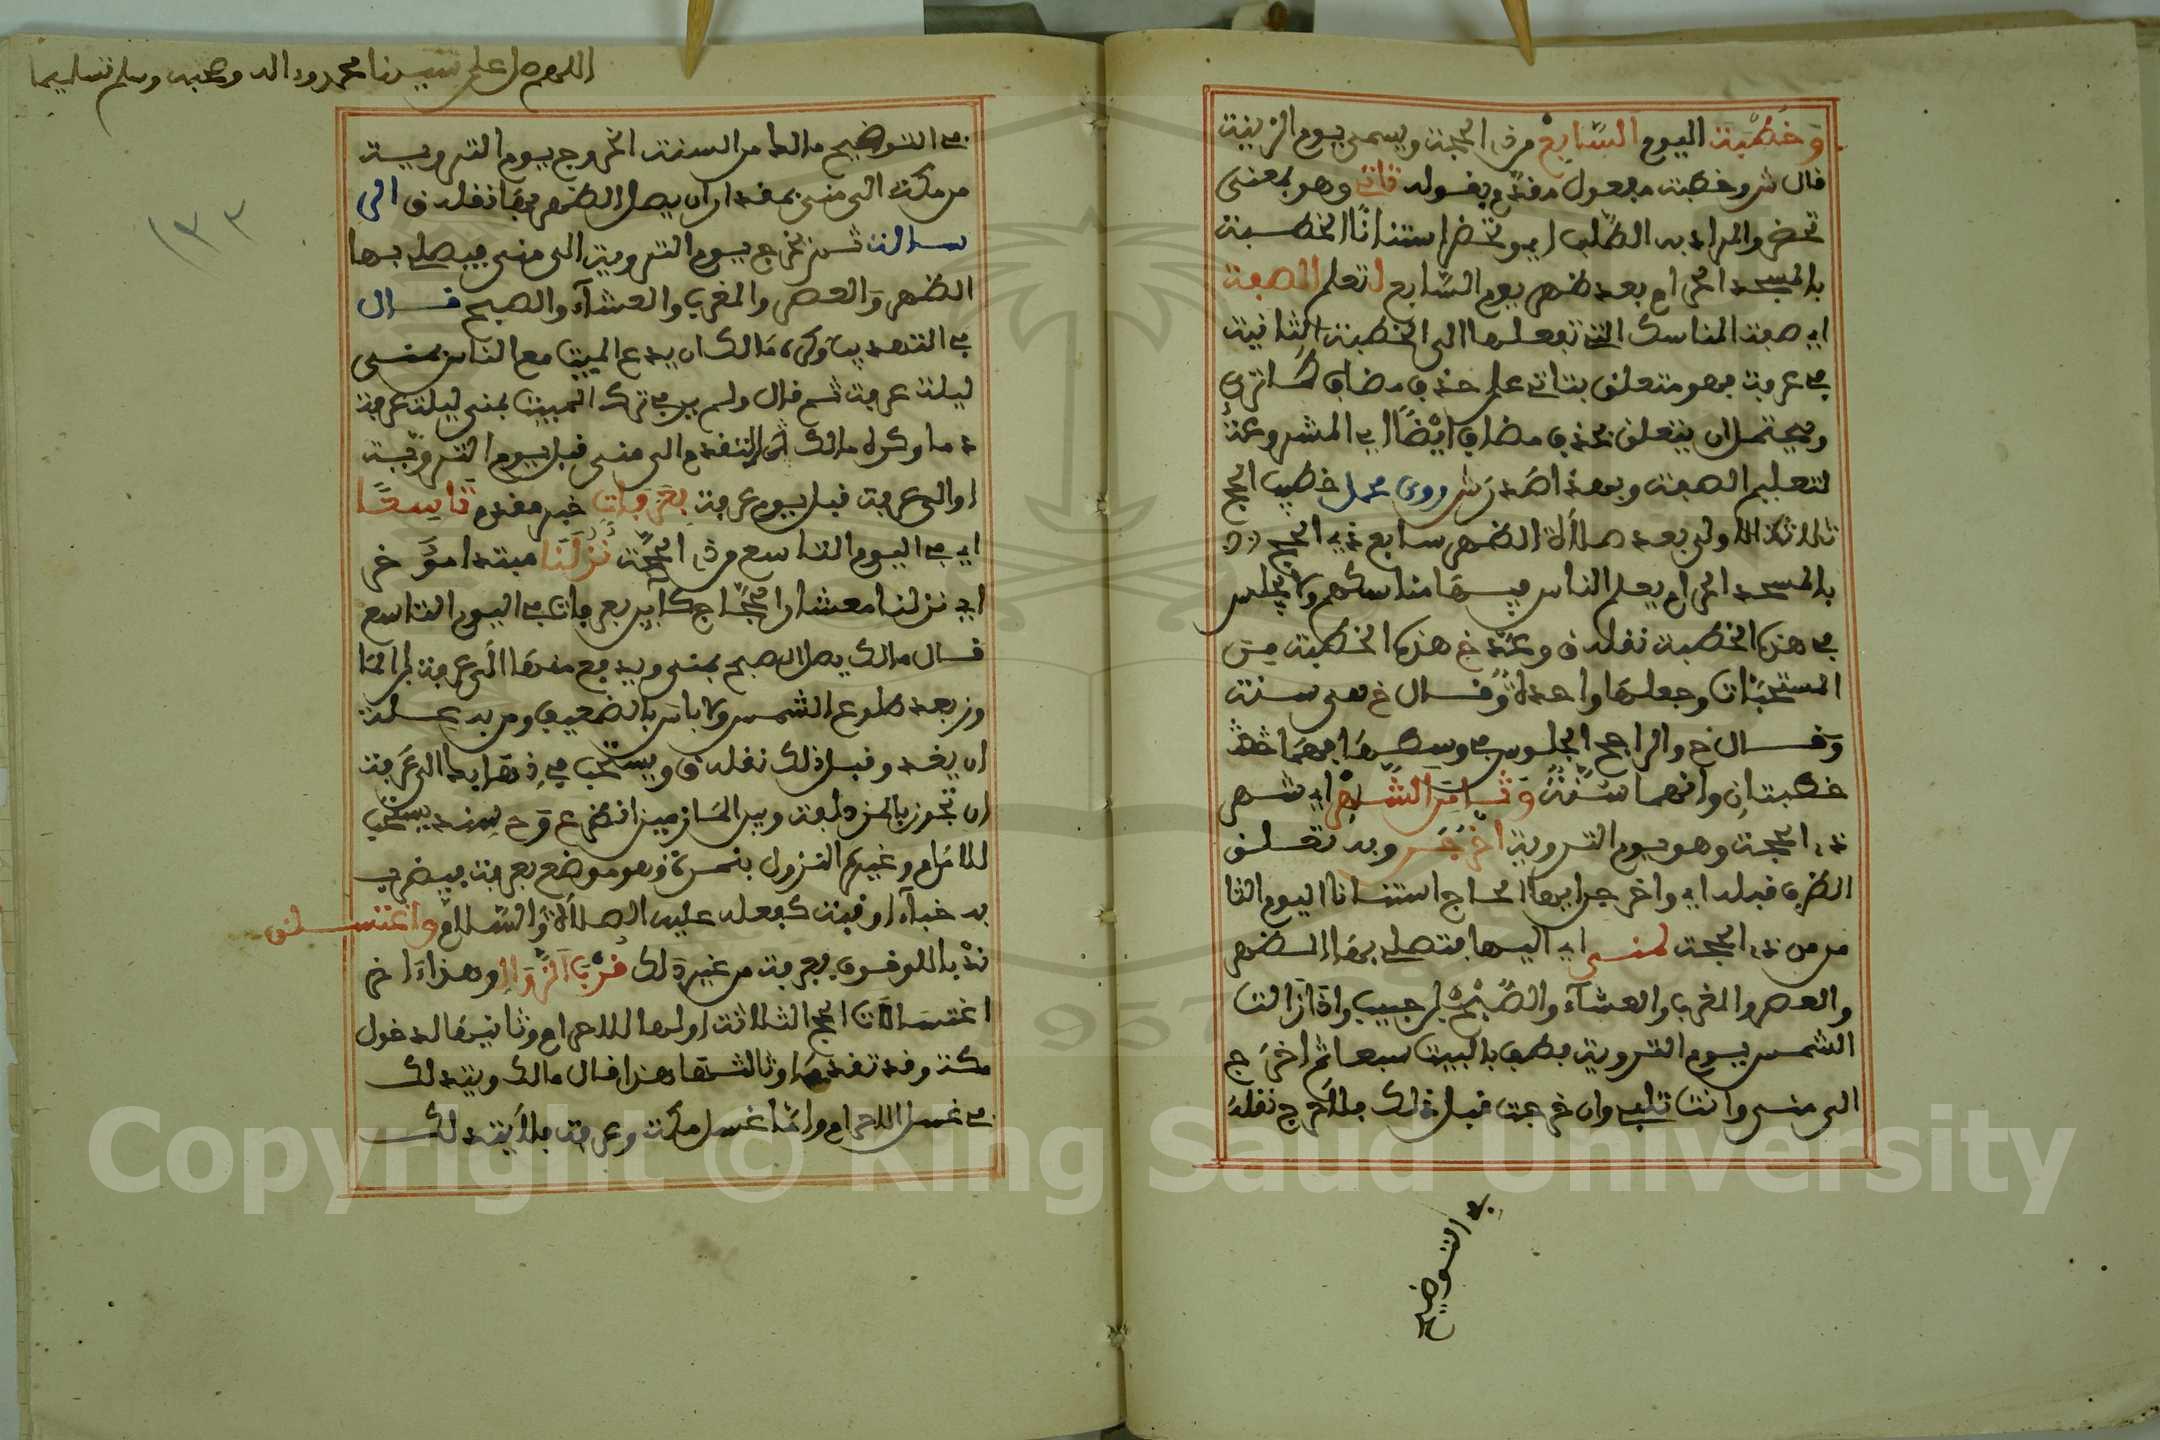 وخطبة اليوم السابع من ذي الحجة ويسمى يوم الزينة
قال ش وخطبة مفعول مقدم بقوله تأتي وهو بمعنى
تحضر والمراد به الطلب اي وتحضر استنانا الخطبة
بالمسجد الحرام بعد ظهر يوم السابع لتعلم الصفة
اي صفة المناسك التي تفعلها الى الخطبة الثانية
في عرفة فهو متعلق بتاتي على حذف مضاف كما ترى
ويحتمل ان يتعلق بحذف مضاف ايضا اي المشروعة
لتعليم الصفة
خطب الحج
ثلاثة الاولى بعد صلاة الظهر سابع ذي الحج
بالمسجد الحرام يعلم الناس فيها مناسكهم ولا يجلس
في هذه الخطبة نقله ق وعد خ هذه الخطبة من
المستحبات وجعلها واحدة وقال غ هي سنة
وقال خ والراجح الجلوس في وسطها فهما
خطبتان وانهما سنة وثامن الشهر اي شهر
ذي الحجة وهو يوم التروية اخرجن وبه تعلق
الظرف قبله اي واخرجن ايها الحاج استنانا اليوم الثا
من من ذي الحجة لمنى اي اليها فتصلي بها الظهر
والعصر والمغرب والعشاء والصبح ابن حبيب واذا زالت
الشمس يوم التروية فطف بالبيت سبعا ثم اخرج
الى منى وانت تلبي وان خرجت قبل ذلك فلا حرج نقله
في التوضيح
اللهم صل على سيدنا محمد واله وصحبه وسلم تسليما
١٣٣
في التوضيح مالك من السنة الخروج يوم التروية
من مكة الى منى بمقدار ان يصل الظهر بها نقله ق
الرسالة ثم يخرج يوم التروية الى منى فيصلي بها
الظهر والعصر والمغرب والعشاء والصبح قال
في التهذيب وكره مالك ان يدع المبيت مع الناس بمنى
ليلة عرفة ثم قال ولم ير في ترك المبيت بمنى ليلة عرفة
دما وكره مالك التقدم الى منى قبل يوم التروية
او الى عرفة قبل يوم عرفة بعرفات خبر مقدم تاسعا
اي في اليوم التاسع من ذي الحجة نزلنا مبتدا مؤخر
اي نزلنا معشر الحجاج بعرفات في اليوم التاسع
قال مالك يصل الصبح بمنى ويدفع منها الى عرفة ابن الموا
وز بعد طلوع الشمس ولا باس بالضعيف ومن به علة
ان يغدو قبل ذلك نقله ق ويستحب في ذهابه الى عرفة
ان تجوز بالمزدلفة وبين المازمين انظر ع وح سند يستحب
للامام وغيره النزول بنمرة وهو موضع بعرفة فيضرب
به خباء او قبة كفعله عليه الصلاة والسلام واغتسلن
ندبا للوقوف بعرفة من غير دلك قرب الزوال وهذا اخر
اغتسالات الحج الثلاثة اولها للاحرام وثانيها لدخول
مكة وقد تقدما وثالثها هذا قال مالك ويتدلك
في غسل الاحرام واما غسل مكة وعرفة فلا يتدلك
Copyright © King Saud University
1957